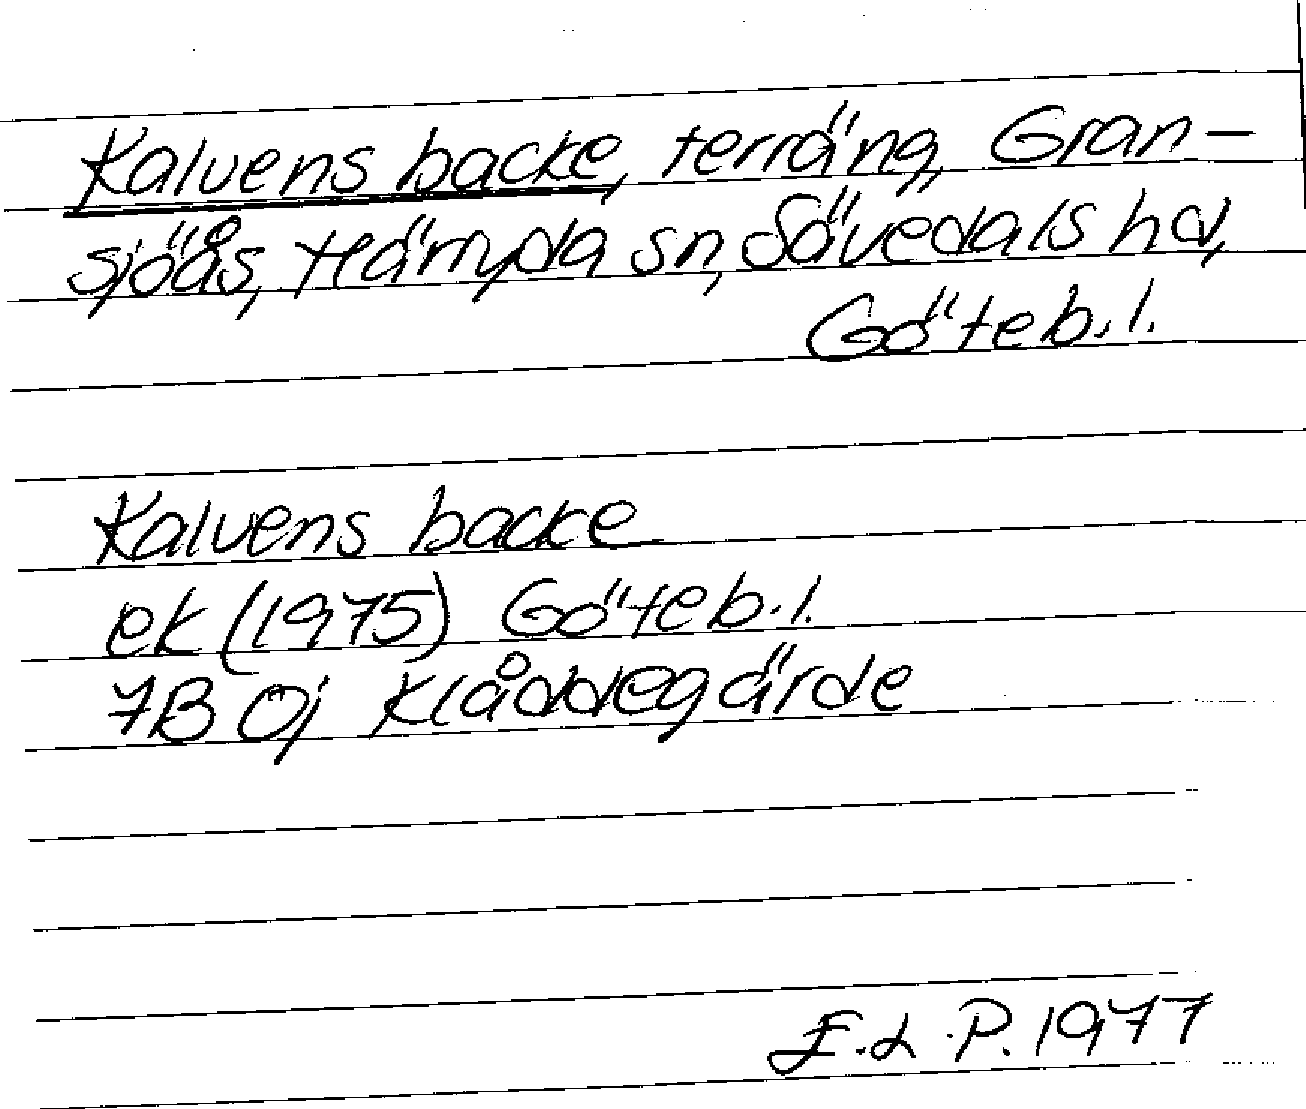 Kalvens backe, terräng, Gran-
sjöås, Härryda sn, Sävedals hd,
Göteb. l.
Kalvens backe
ek (1975) Göteb. l.
7B 0j Klåddegärde
E.L.P. 1977